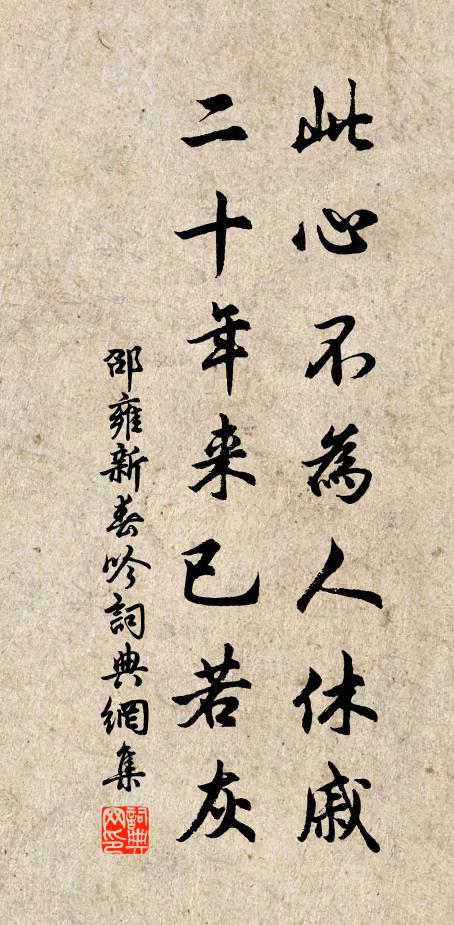 此心不為人休戚
二十年来已若灰
邵雍新春吟詞典網集
詞典网印